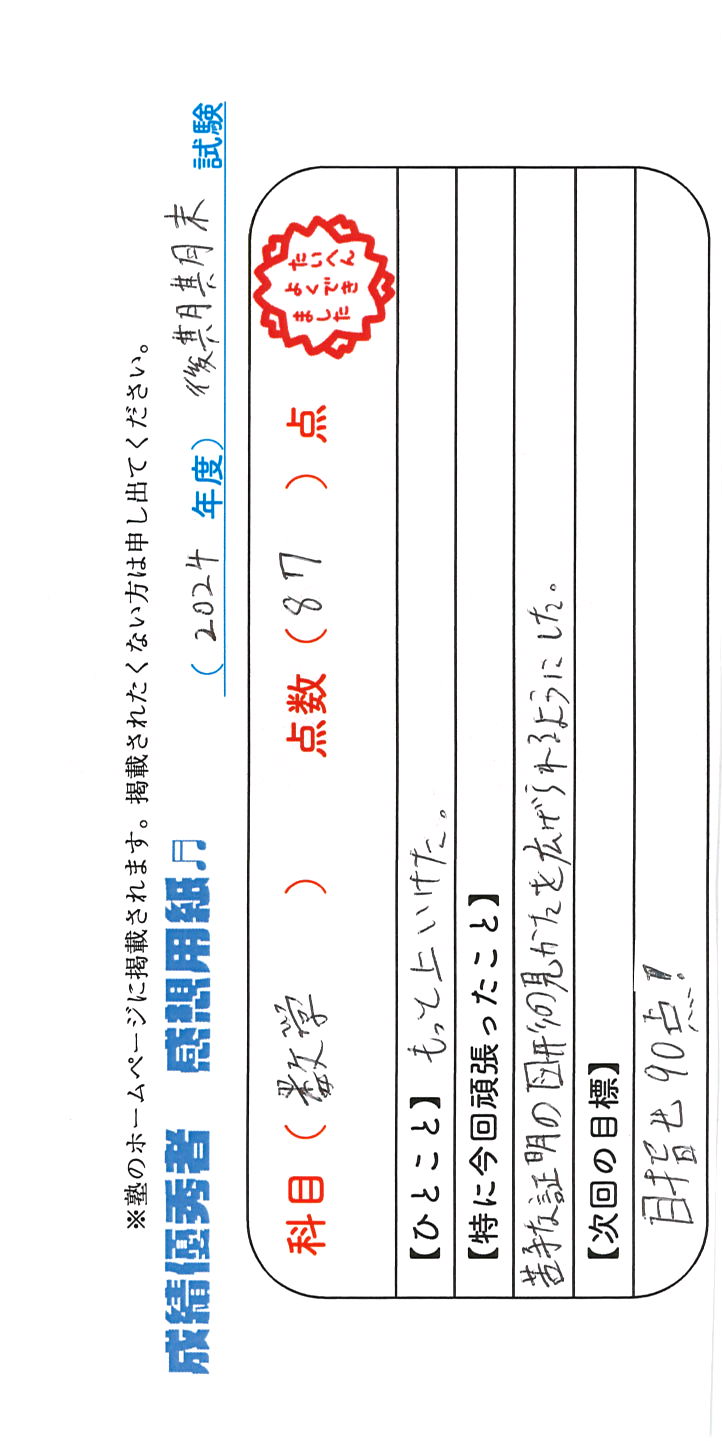 ※塾のホームページに掲載されます。掲載されたくない方は申し出てください。
成績優秀者 感想用紙♫
(2024 年度) 後期期末 試験
科目(数学) 点数(87)点
たいへん
よくでき
ました
【ひとこと】もっと上いけた。
【特に今回頑張ったこと】
苦手な証明の図形の見かたを広げられるようにした。
【次回の目標】
目指せ90点!